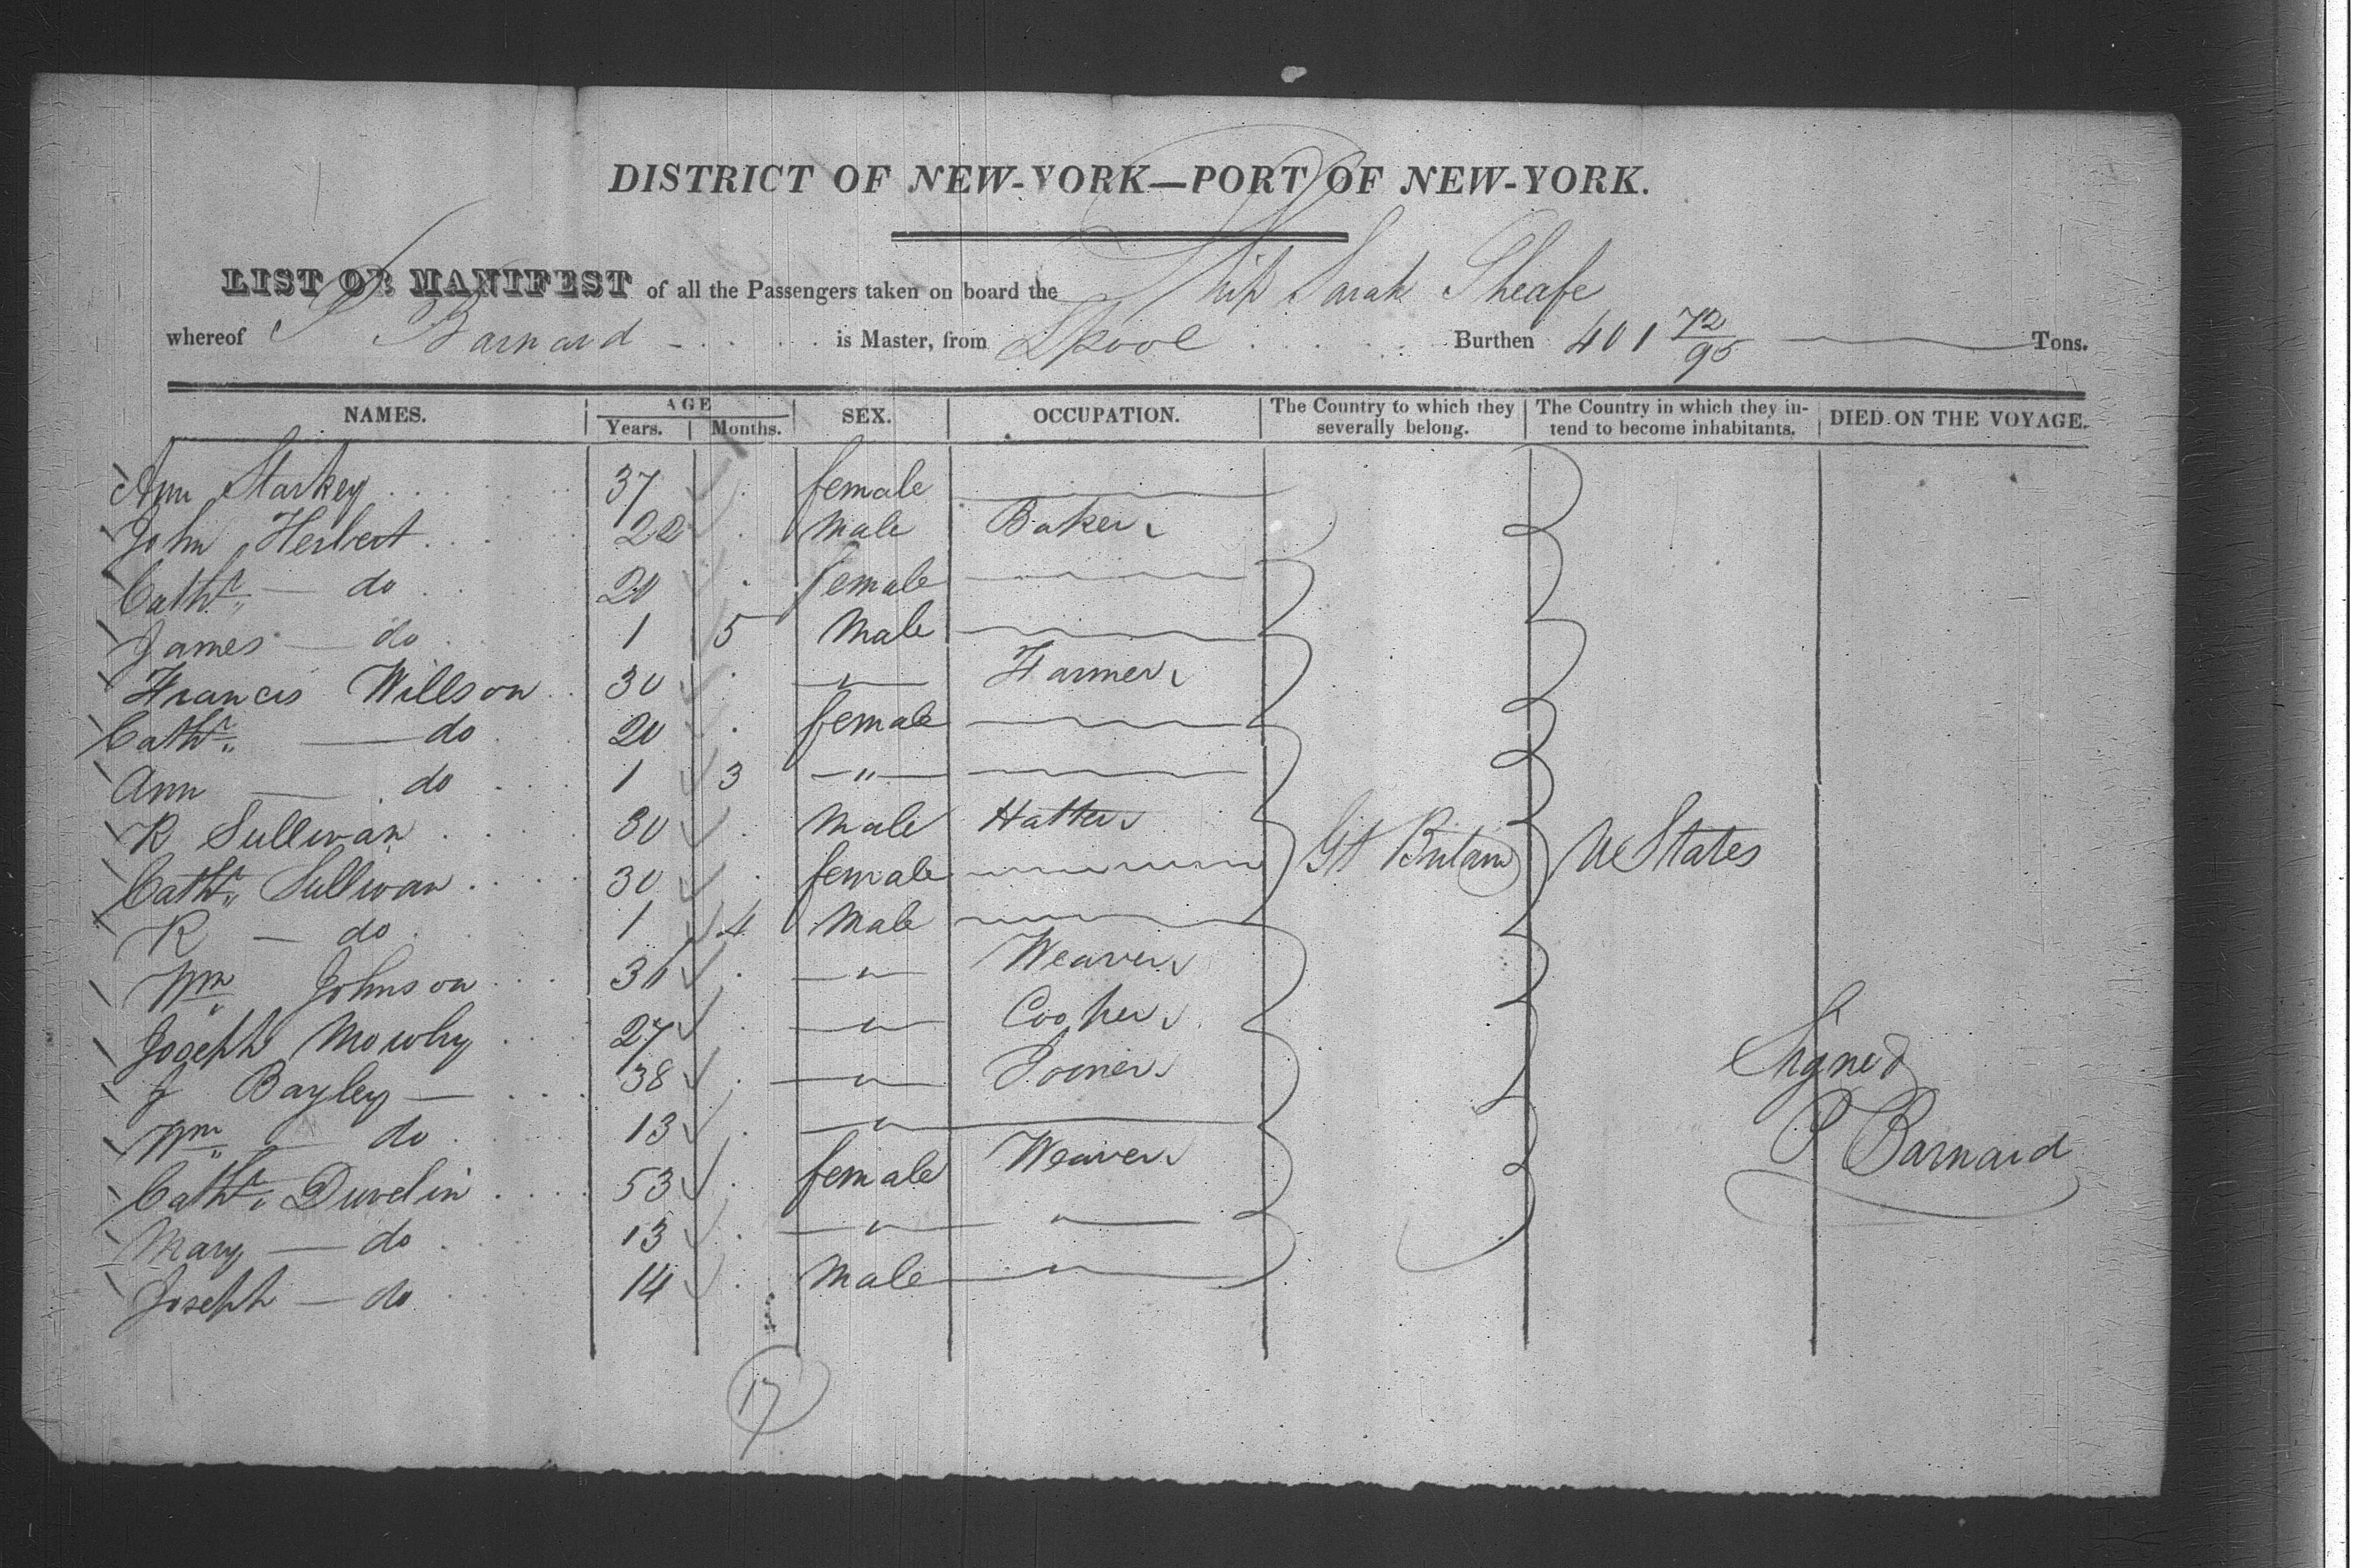 DISTRICT OF NEW-YORK—PORT OF NEW-YORK.
LIST OR MANIFEST of all the Passengers taken on board the Ship Sarah Sheafe
whereof P Barnard is Master, from Lpool Burthen 401 72/95 Tons.
NAMES. AGE Years. Months. SEX. OCCUPATION. The Country to which they severally belong. The Country in which they intend to become inhabitants. DIED ON THE VOYAGE.
Ann Starkey 37 female
John Herbert 22 Male Baker
Cathr do 20 female
James do 1 5 Male
Francis Willson 30 " Farmer
Cathr do 20 female
Ann do 1 3 "
R Sullivan 30 Male Hatter
Cathr Sullivan 30 female Gt Britain U States
R do 1 4 Male
Wm Johnson 30 " Weaver
Joseph Mowby 27 " Cooper
J Bayley 38 " Joiner
Wm do 13 "
Cathr Duvelin 53 female Weaver
Mary do 13 " "
Joseph do 14 Male "
Signed
P Barnard
17